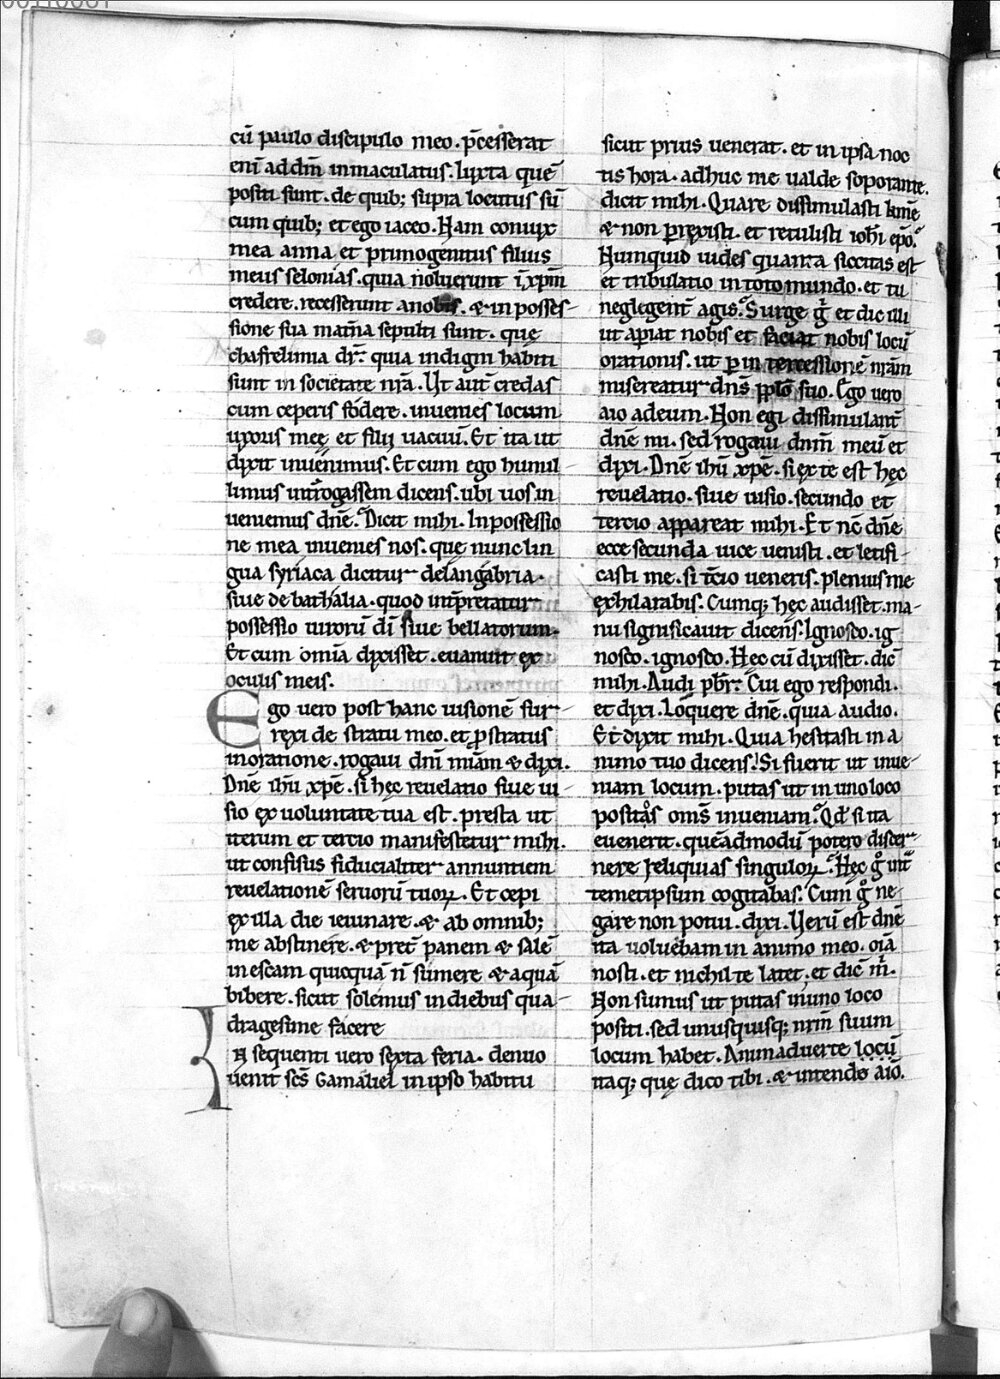 cū paulo discipulo meo. p̄cesserat
enī ad dm̄ inmaculatus. Iuxta quē
positi sunt. de quib; supra locutus sū
cum quib; et ego iaceo. Nam coniux
mea anna et primogenitus filius
meus selonias. quia noluerunt ī xp̄m
credere. recesserunt a nobis. & in posses-
sione sua mat̄na sepulti sunt. que
chafrelimia dr̄. quia indigni habiti
sunt in societate nr̄a. Ut aut̄ credas
cum ceperis fodere. inuenies locum
uxoris meę et filij uacuū. Et ita ut
dixit inuenimus. Et cum ego humil-
limus int̄rogassem dicens. ubi uos in
ueniemus dn̄e. Dicit mihi. In possessio
ne mea inuenies nos. que nunc lin
gua syriaca dicitur delangabria.
siue debathalia. quod int̄pretatur
possessio uirorū dī siue bellatorum.
Et cum om̄ia dixisset. euanuit ex
oculis meis.
Ego uero post hanc uisionē sur-
rexi de stratu meo. et ꝓstratus
in oratione. rogaui dn̄i miām & dixi.
Dn̄e ih̄u xp̄e. si hęc reuelatio siue ui-
sio ex uoluntate tua est. presta ut
iterum et tercio manifestetur mihi.
ut confisus fiducialiter annuntiem
reuelationē seruorū tuoꝝ. Et cepi
ex illa die ieiunare. & ab omnib;
me abstinere. & pret̄ panem & salē
in escam quicquā n̄ sumere & aquā
bibere. sicut solemus in diebus qua-
dragesime facere
IN sequenti uero sexta feria. denuo
uenit sēs Gamaliel in ipso habitu
sicut prius uenerat. et in ipsa noc
tis hora. adhuc me ualde soporante.
dicit mihi. Quare dissimulasti
& non ꝑrexisti. et retulisti ioh̄i ep̄o.
Numquid uides quanta siccitas est
et tribulatio in toto mundo. et tu
neglegent̄ agis. Surge g̊ et dic illi
ut apiat nobis et faciat nobis locū
orationis. ut ꝑ intercessionē nr̄am
misereatur dn̄s pp̄lo suo. Ego uero
aio ad eum. Non egi dissimulant̄
dn̄e mi. sed rogaui dn̄m meū et
dixi. Dn̄e ih̄u xp̄e. si ex te est hęc
reuelatio. siue uisio. secundo et
tercio appareat mihi. Et nc̄ dn̄e
ecce secunda uice uenisti. et letifi-
casti me. si t̄cio ueneris. plenius me
exhilarabis. Cumq; hęc audisset. ma-
nu significauit dicens. Ignosco. ig
nosco. ignosco. Hec cū dixisset. dic̄
mihi. Audi pb̄r. Cui ego respondi.
et dixi. Loquere dn̄e. quia audio.
Et dixit mihi. Quia hesitasti in a
nimo tuo dicens! Si fuerit ut inue-
niam locum. putas ut in uno loco
positos om̄s inueniam. Qd̄ si ita
euenerit. quēadmodū potero discer-
nere reliquias singuloꝝ. Hęc g̊ int̄
temetipsum cogitabas. Cum g̊ ne
gare non potui. dixi. Uerū est dn̄e
ita uoluebam in animo meo. oīa
nosti. et nichil te latet. et dic̄ m̄.
Non sumus ut putas in uno loco
positi. sed unusquisq; nr̄m suum
locum habet. Animaduerte locū
itaq; que dico tibi. & intendo aīo.